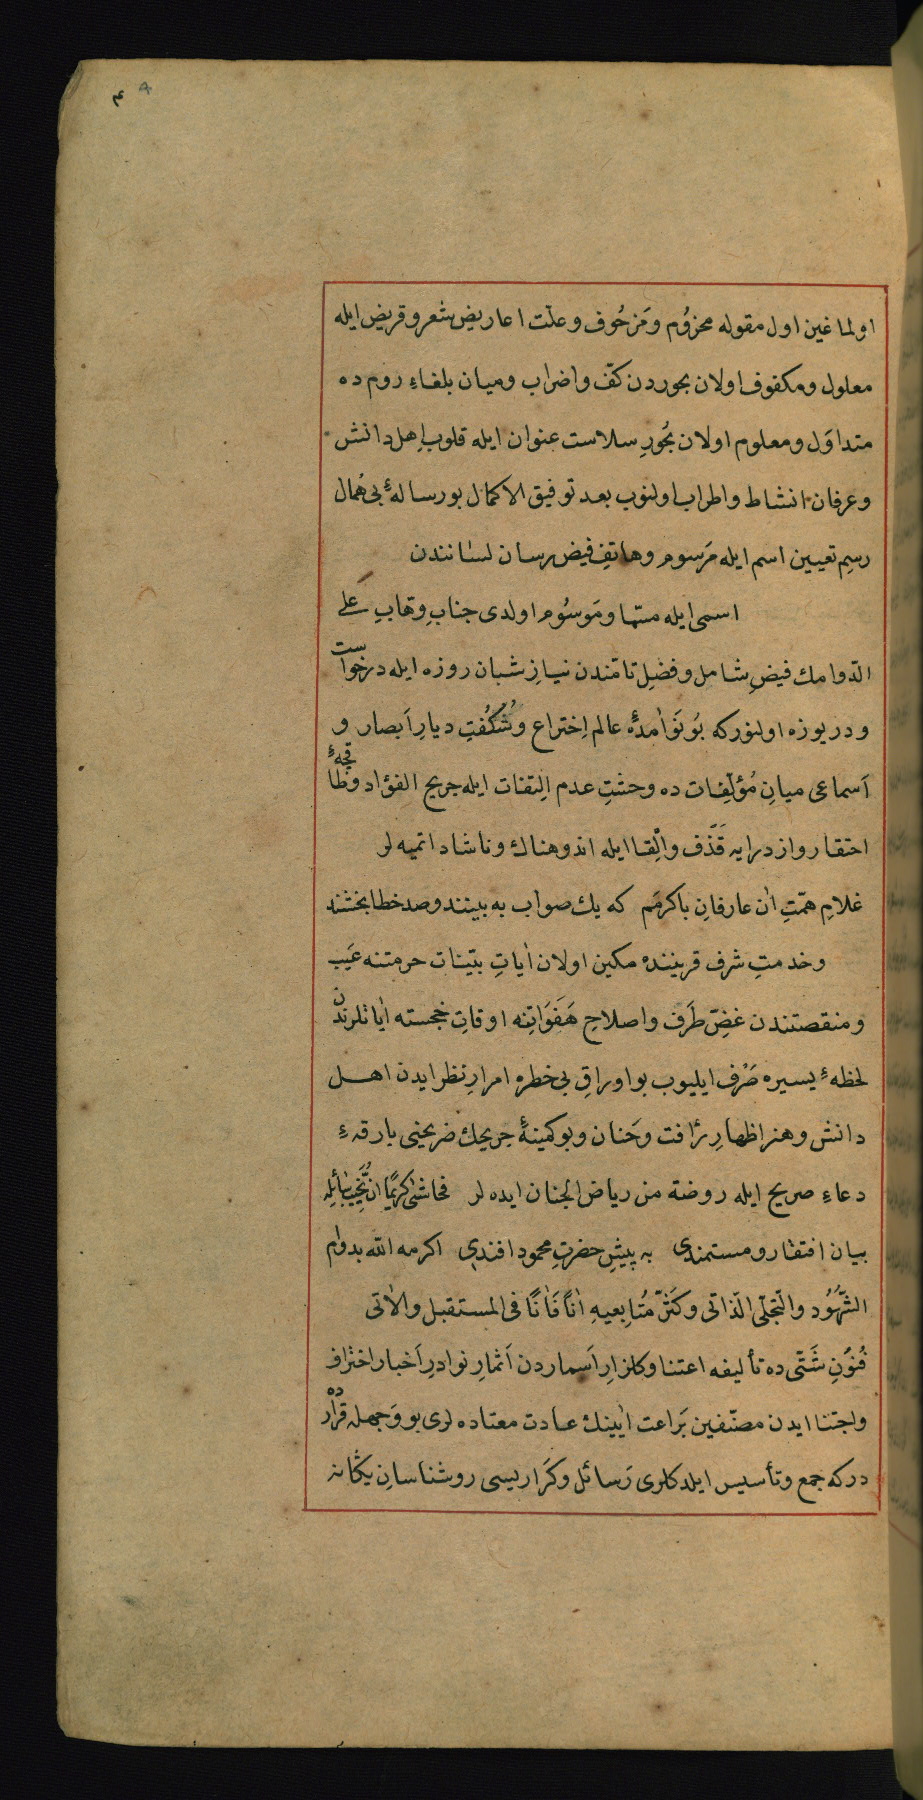 ٤
اولماغين اول مقوله مخزُوم ومَزحُوف وعلّت اعاريضِ شعر وقريض ايله
معلول ومكفوف اولان بحوردن كفّ واضراب وميان بلغاءِ روم ده
متداوَل ومعلوم اولان بُحُورِ سلاست عنوان ايله قلوبِ اهل دانش
وعرفان انشاط واطراب اولنوب بعد توفيق الاكمال بو رسالهٔ بى هُمال
رسمِ تعيين اسم ايله مَرسوم وهاتفِ فيض رسان لساننندن
اسمى ايله مسمّا ومَوسُوم اولدى جنابِ وهّابِ عَلى
الدّوامك فيضِ شامل وفضلِ تامّندن نيازِ شبان روزه ايله درخواست
ودريوزه اولنوركه بُو نَوْآمدهٔ عالمِ اِختراع وشُكُفتِ ديارِ اَبصار و
اَسماعى ميانِ مُؤلّفات ده وحشتِ عدم اِلتفات ايله جريح الفؤاد وفجهٔ
احتقار واز درايه قَذْف واِلقا ايله اندوهناك وناشاد اتميه لر
غلامِ همّتِ آن عارفانِ باكرمَم كه يك صواب به بينند وصد خطا بخشند
وخدمتِ شرف قرينندە مكين اولان آياتِ بيّنات حرمتنه عَيب
ومنقصتندن غضِّ طَرَف واصلاحِ هَفَوَاتِنه اوقاتِ خجسته آياتلرندن
لحظهٔ يسيره صَرْف ايليوب بو اوراقِ بى خطره امرارِ نظر ايدن اهل
دانش وهنر اظهارِ رأفت وحَنان وبو كمينهٔ جريحك ضريحنى بارقهٔ
دعاءِ صريح ايله روضة من رياض الجنان ايده لر فحاشى كريمًا ان يُخَيِّبَ سَائِلِه
بيان افتقار ومستمندى به پيشِ حضرتِ محمود افندى اكرمه الله بدوام
الشُّهُود والتّجلّى الذّاتى وكَثّر مُتابعيهِ آنًا فَآنًا فى المستقبل والآتى
فُنُونِ شَتّى ده تأليفه اعتنا وكلزارِ اَسماردن اَثمارِ نوادرِ اَخبار اختراف
واجتنا ايدن مصنّفين بَراعت آيينك عادت معتاده لرى بو وَجهله قرارده
دركه جمع وتأسيس ايلدكلرى رَسائل وكَراريسى روشناسانِ يكانه